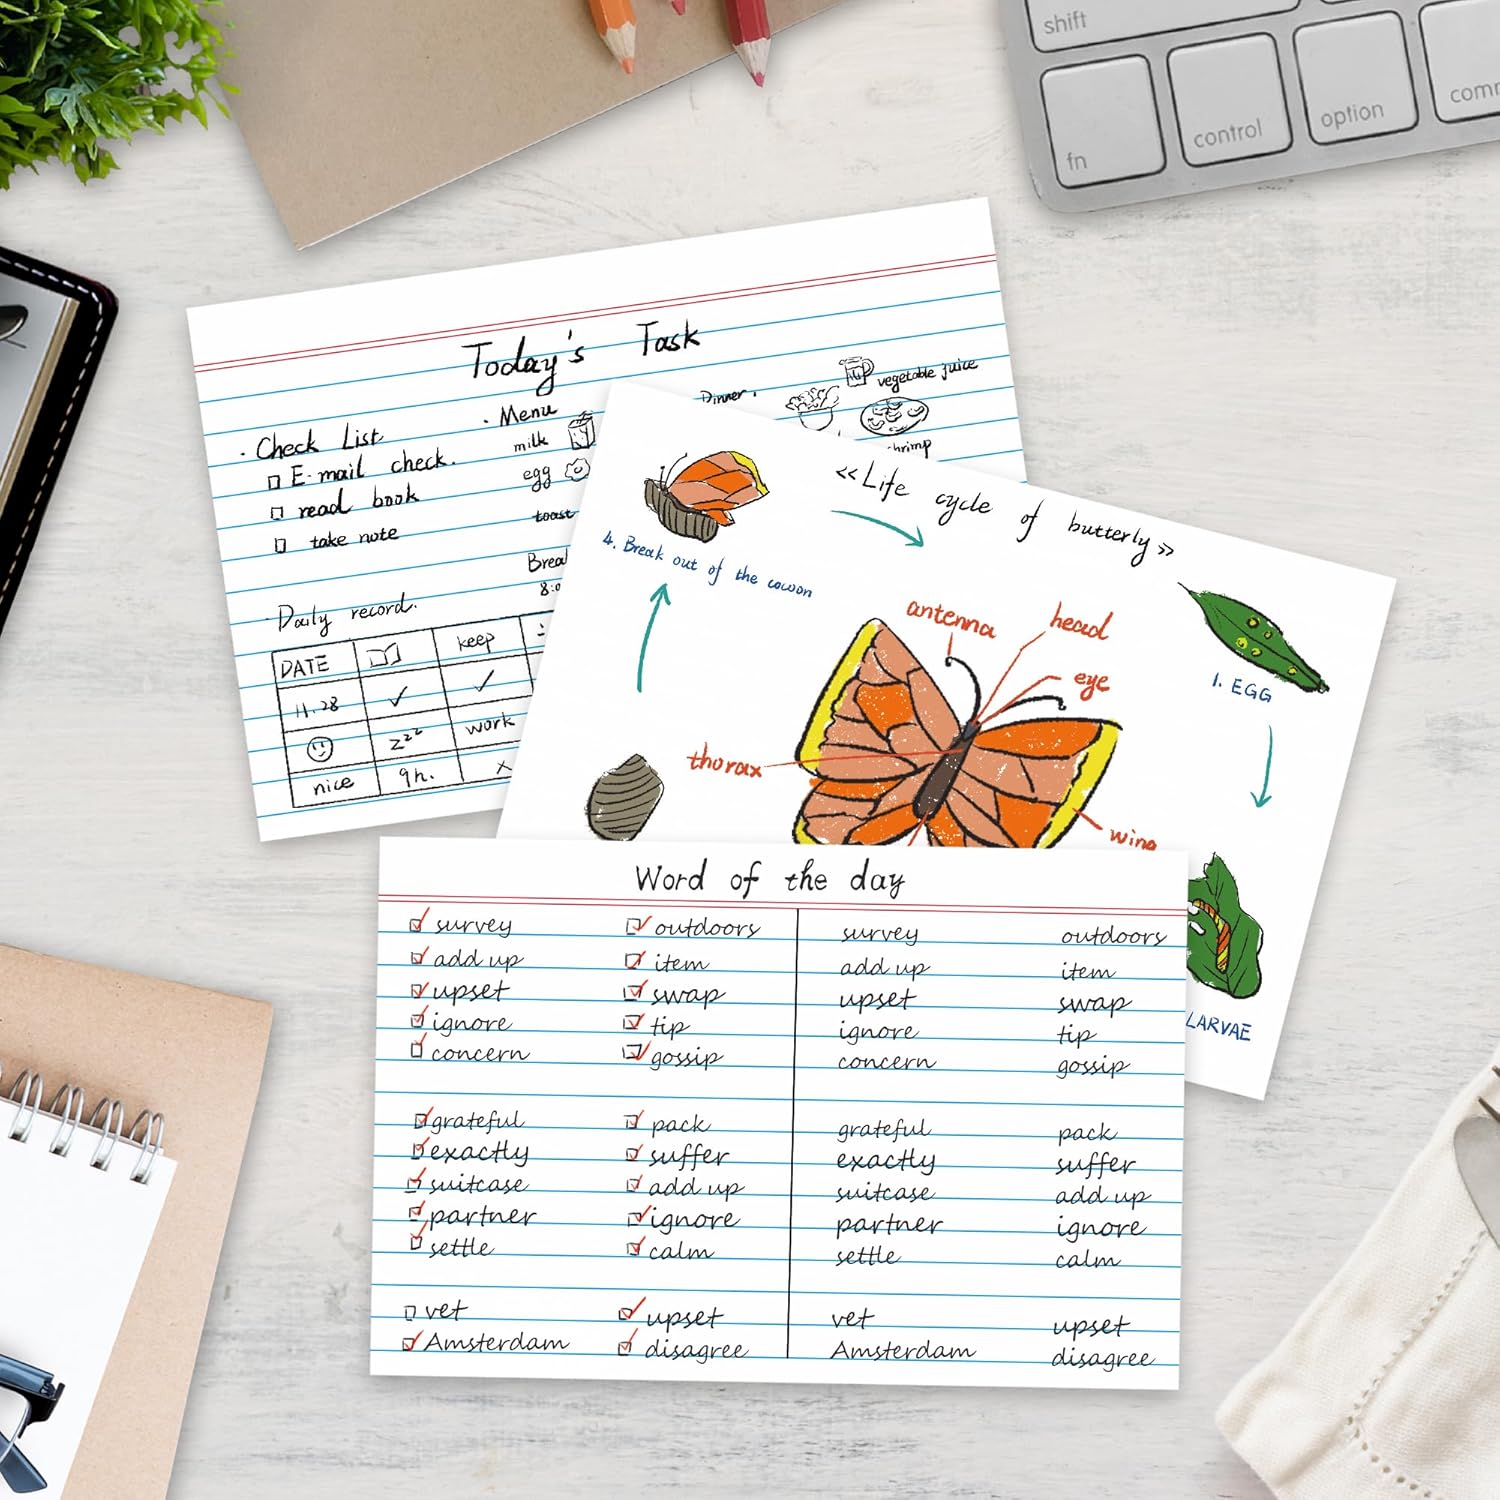 shift
fn
control
option
Today's Task
· Check List
E-mail check.
read book
take note
· Menu
milk
egg
toast
Dinner.
vegetable juice
· Daily record.
DATE keep
11.28
work
nice 9h. x
«Life cycle of butterly»
4. Break out of the cocoon
antenna
head
eye
thorax
wing
1. EGG
LARVAE
Word of the day
survey outdoors survey outdoors
add up item add up item
upset swap upset swap
ignore tip ignore tip
concern gossip concern gossip
grateful pack grateful pack
exactly suffer exactly suffer
suitcase add up suitcase add up
partner ignore partner ignore
settle calm settle calm
vet upset vet upset
Amsterdam disagree Amsterdam disagree